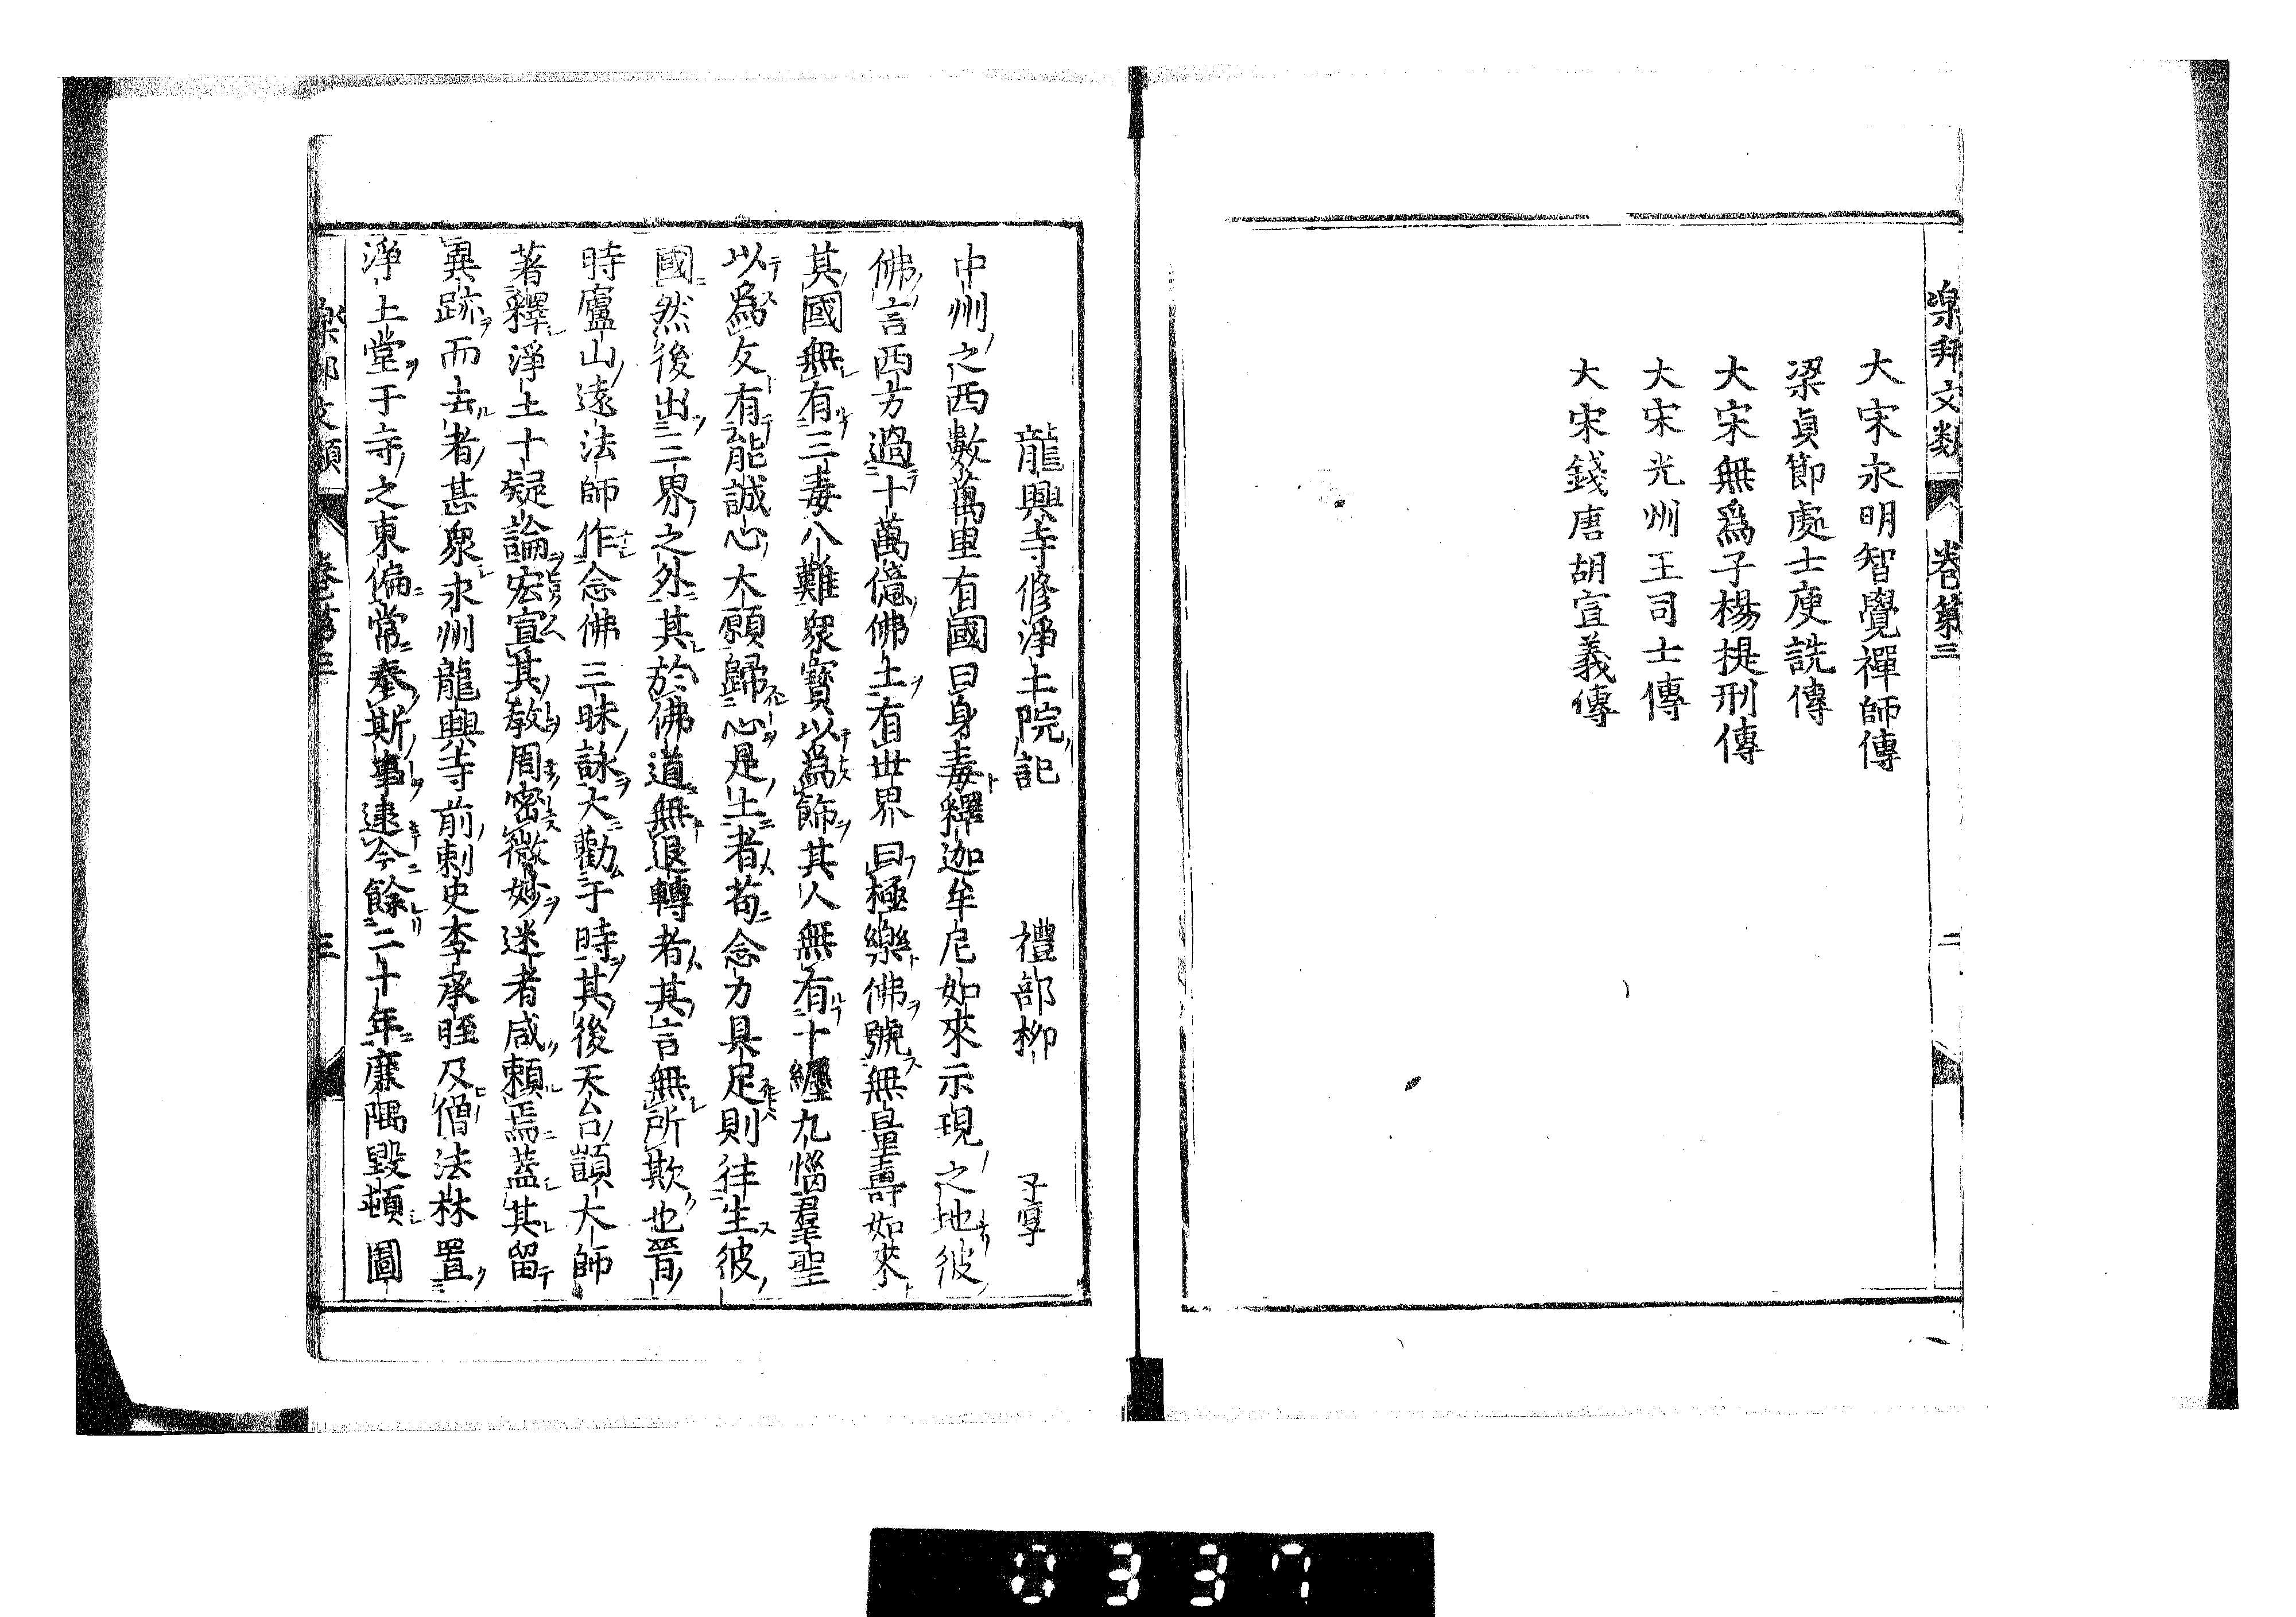 樂邦文類 卷第三 二
大宋永明智覺禪師傳
梁貞節處士庾詵傳
大宋無爲子楊提刑傳
大宋光州王司士傳
大宋錢唐胡宣義傳
龍興寺修淨土院記 禮部柳 子厚
中州之西數萬里有國曰身毒釋迦牟尼如來示現之地彼
佛言西方過十萬億佛土有世界曰極樂佛號無量壽如來
其國無有三毒八難衆寶以為飾其人無有十纏九惱羣聖
以為友有能誠心大願歸心是土者苟念力具足則往生彼
國然後出三界之外其於佛道無退轉者其言無所欺也晉
時廬山遠法師作念佛三昧詠大勸于時其後天台顗大師
著釋淨土十疑論宏宣其教周密微妙迷者咸賴焉蓋其留
異跡而去者甚衆永州龍興寺前刺史李承晊及僧法林置
淨土堂于寺之東偏常奉斯事逮今餘二十年廉隅毀頓圖
樂邦文類 卷第三 三
0337